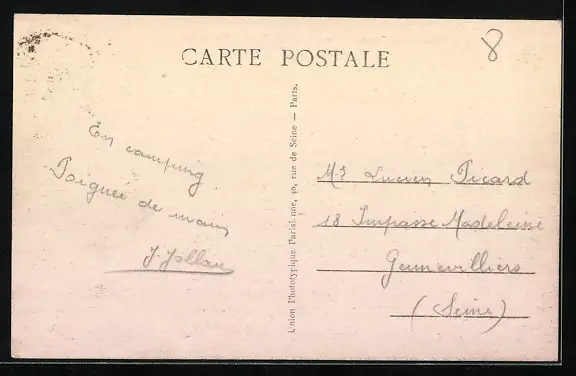 CARTE POSTALE
8
En camping
Poignée de main
J. Jollan
Union Phototypique Parisienne, 40, rue de Seine — Paris.
Mr Lucien Picard
18 Impasse Madeleine
Gennevilliers
(Seine)